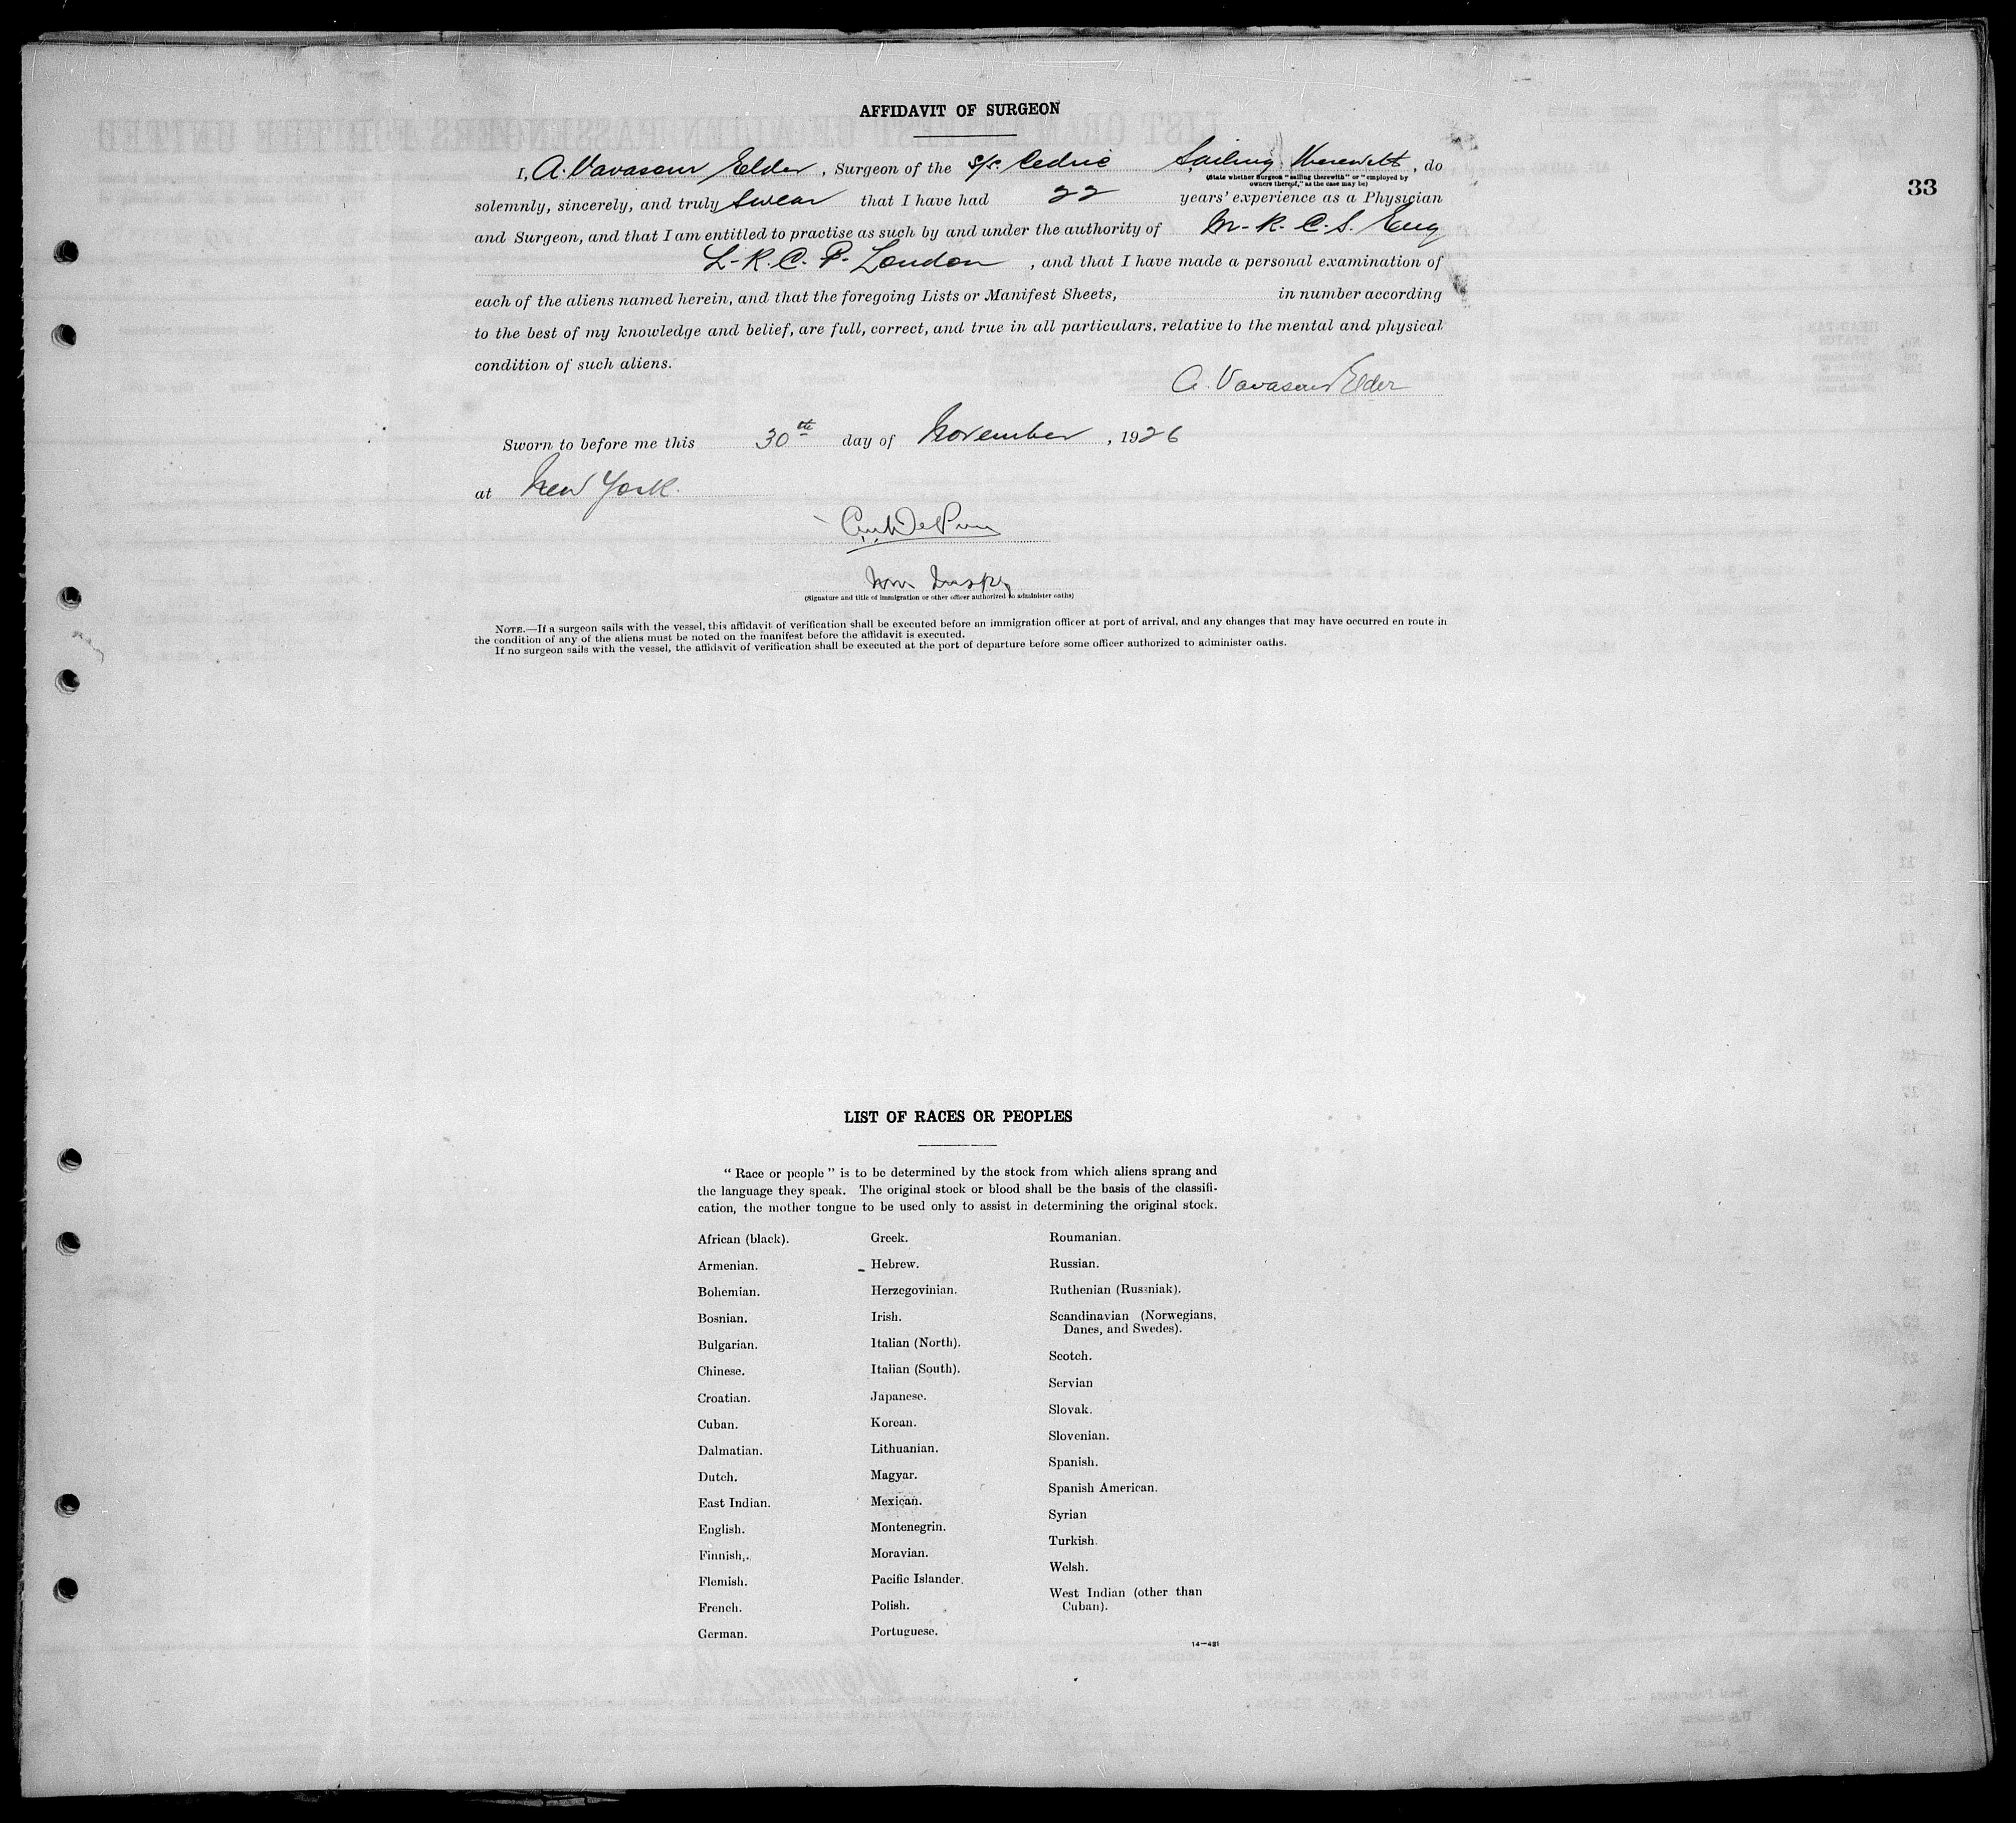 AFFIDAVIT OF SURGEON
33
I, A. Vavasour Elder, Surgeon of the s/s. Cedric Sailing Therewith, do
(State whether Surgeon "sailing therewith" or "employed by
owners thereof," as the case may be)
solemnly, sincerely, and truly swear that I have had 22 years' experience as a Physician
and Surgeon, and that I am entitled to practise as such by and under the authority of M.R.C.S. Eng
L.R.C.P. London, and that I have made a personal examination of
each of the aliens named herein, and that the foregoing Lists or Manifest Sheets, in number according
to the best of my knowledge and belief, are full, correct, and true in all particulars, relative to the mental and physical
condition of such aliens.
A. Vavasour Elder
Sworn to before me this 30th day of November, 1926
at New York.
Imm Inspr
(Signature and title of immigration or other officer authorized to administer oaths)
NOTE.—If a surgeon sails with the vessel, this affidavit of verification shall be executed before an immigration officer at port of arrival, and any changes that may have occurred en route in
the condition of any of the aliens must be noted on the manifest before the affidavit is executed.
If no surgeon sails with the vessel, the affidavit of verification shall be executed at the port of departure before some officer authorized to administer oaths.
LIST OF RACES OR PEOPLES
"Race or people" is to be determined by the stock from which aliens sprang and
the language they speak. The original stock or blood shall be the basis of the classifi-
cation, the mother tongue to be used only to assist in determining the original stock.
African (black).
Armenian.
Bohemian.
Bosnian.
Bulgarian.
Chinese.
Croatian.
Cuban.
Dalmatian.
Dutch.
East Indian.
English.
Finnish.
Flemish.
French.
German.
Greek.
Hebrew.
Herzegovinian.
Irish.
Italian (North).
Italian (South).
Japanese.
Korean.
Lithuanian.
Magyar.
Mexican.
Montenegrin.
Moravian.
Pacific Islander.
Polish.
Portuguese.
Roumanian.
Russian.
Ruthenian (Russniak).
Scandinavian (Norwegians,
Danes, and Swedes).
Scotch.
Servian
Slovak.
Slovenian.
Spanish.
Spanish American.
Syrian
Turkish.
Welsh.
West Indian (other than
Cuban).
14—421